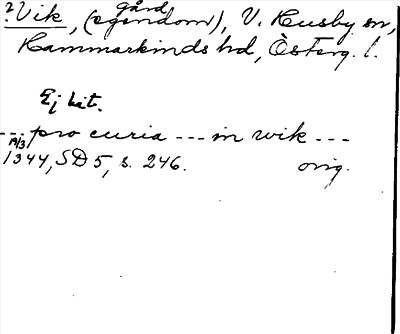 ? Vik, (egendom), gård V. Husby sn,
Hammarkinds hd, Österg. l.
Ej hit.
--- pro curia --- in wik ---
19/3 1344, SD 5, s. 246. orig.